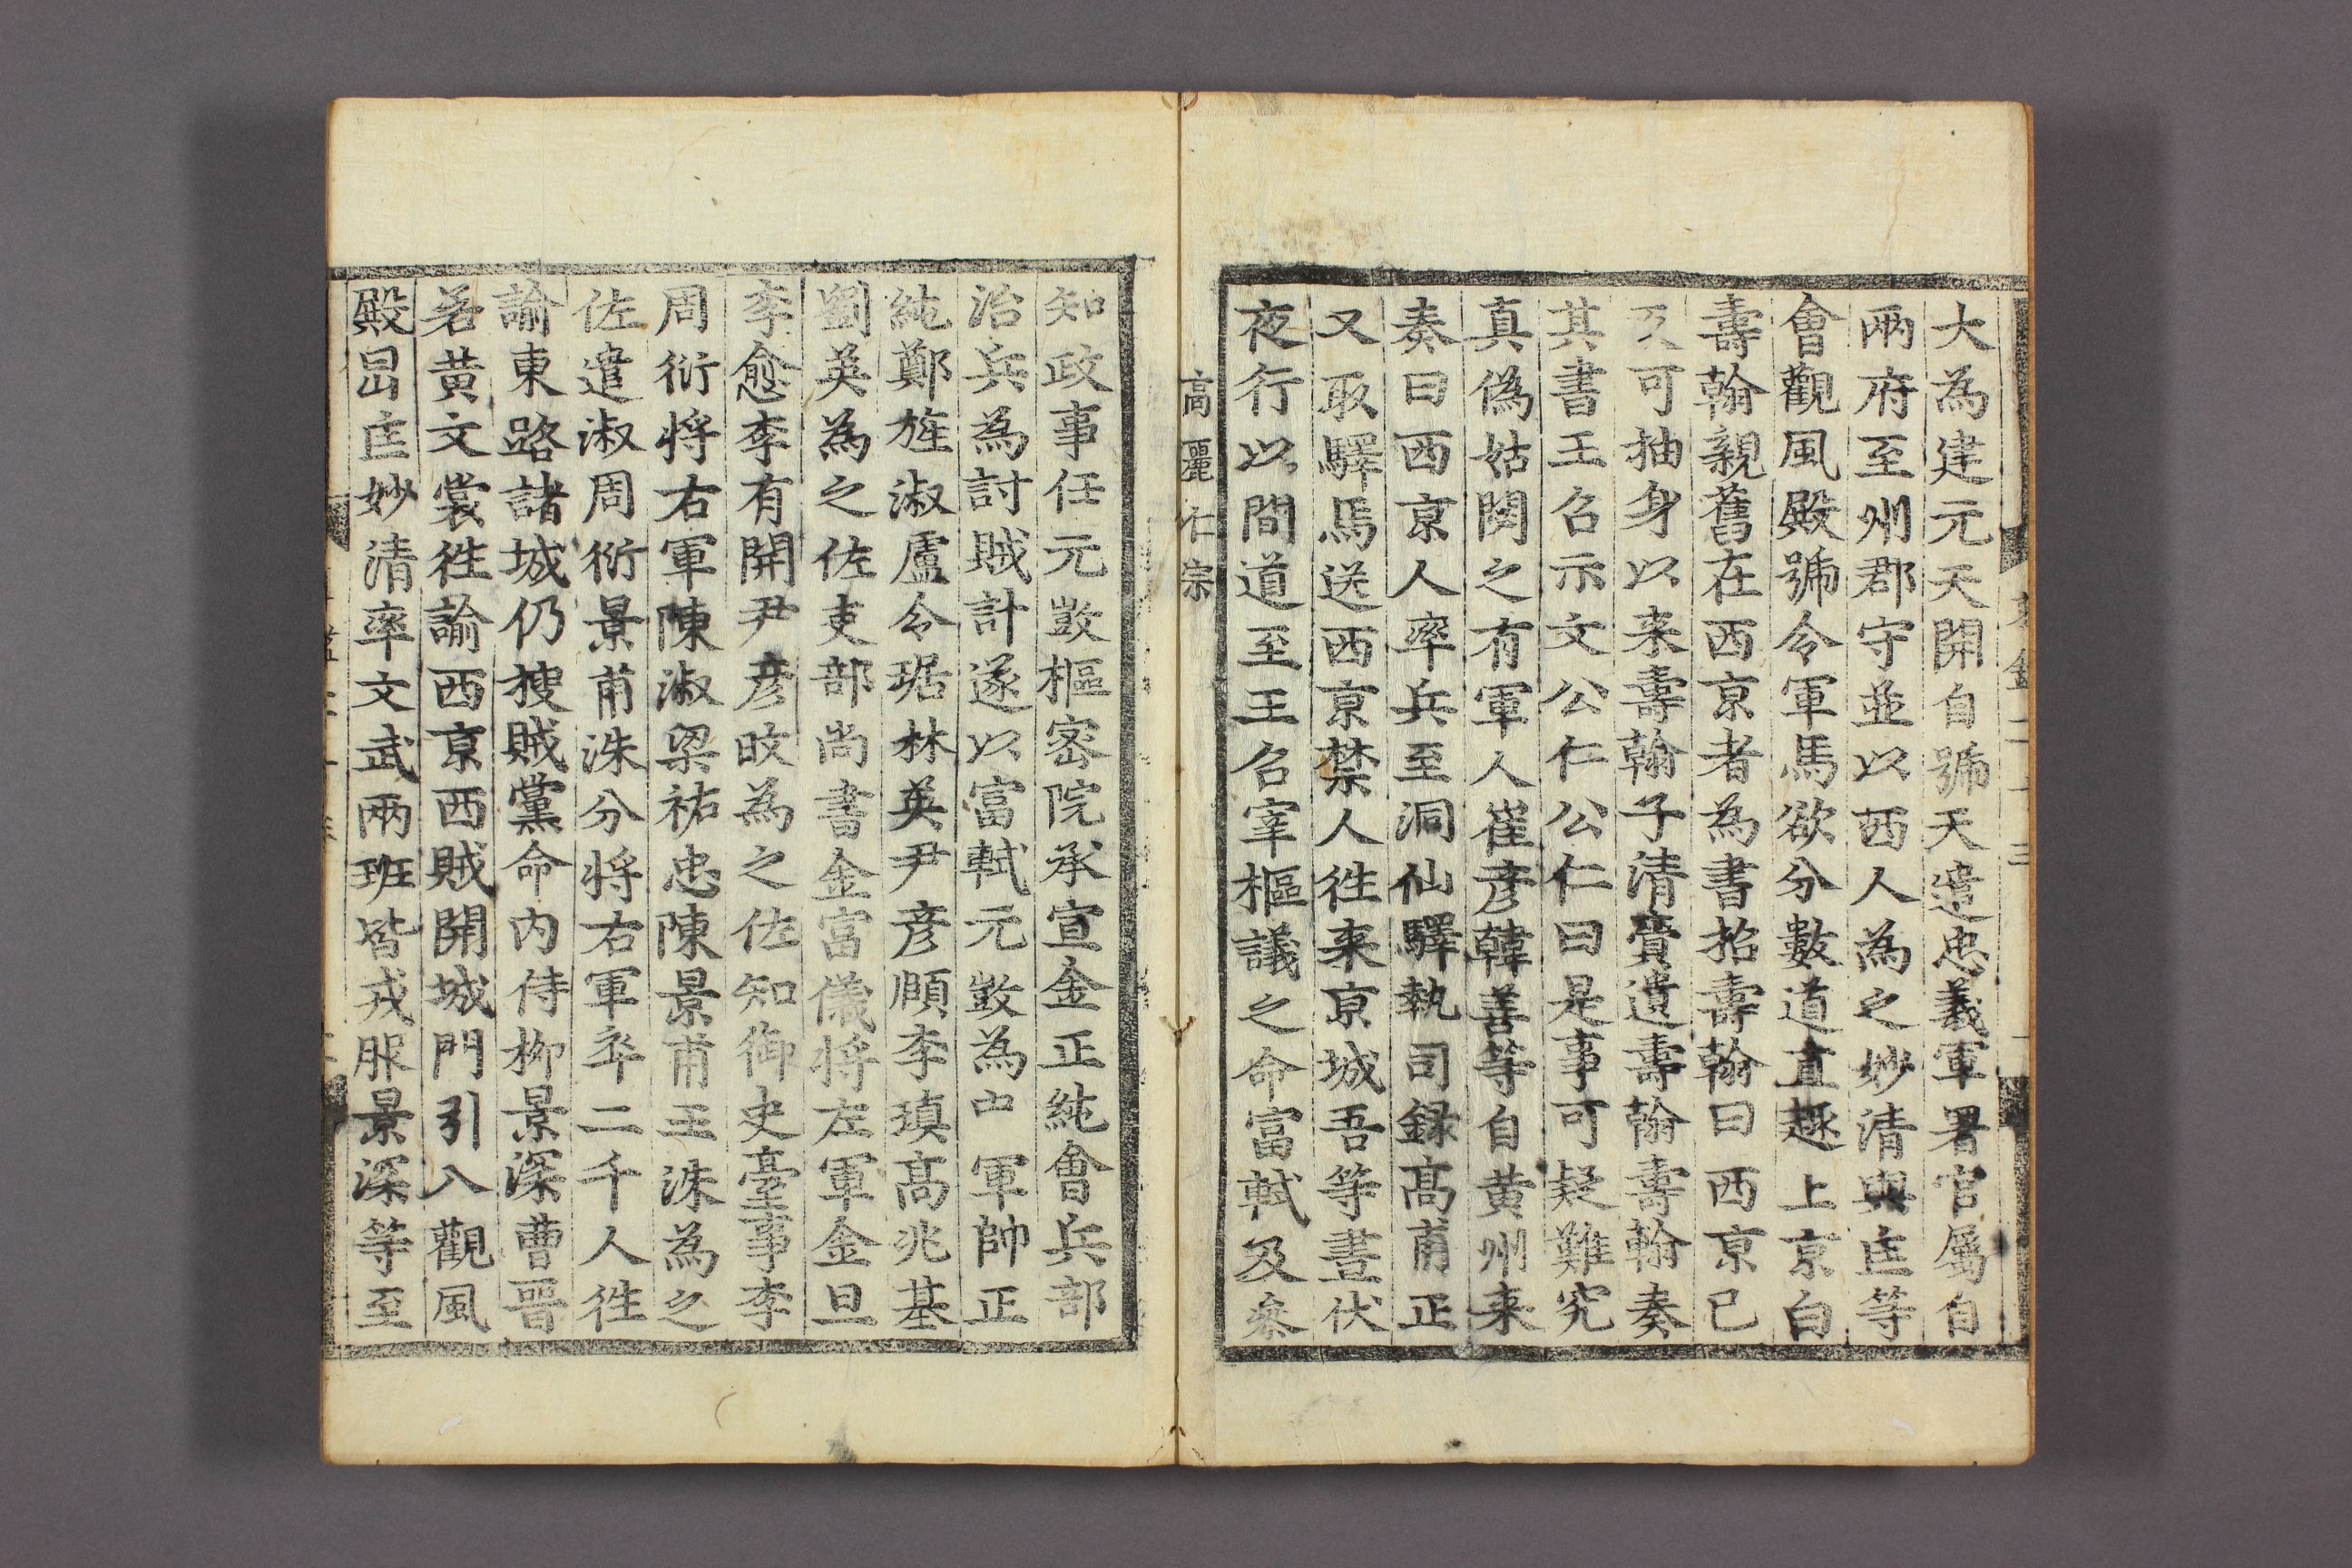 大為建元天開自號天遣忠義軍署官屬自
兩府至州郡守並以西人為之妙清與匡等
會觀風殿號令軍馬欲分數道直趣上京白
壽翰親舊在西京者為書招壽翰曰西京已
反可抽身以来壽翰子清賫遺壽翰壽翰奏
其書王召示文公仁公仁曰是事可疑難究
真偽姑閟之有軍人崔彦韓善等自黄州来
奏曰西京人率兵至洞仙驛執司録高甫正
又取驛馬送西京禁人徃来京城吾等晝伏
夜行以間道至王召宰樞議之命富軾及叅
高麗仁宗
知政事任元敱樞宻院承宣金正純會兵部
治兵為討賊計遂以富軾元敱為中軍帥正
純鄭旌淑盧令琚林英尹彦頤李瑱高兆基
劉英為之佐吏部尚書金富儀将左軍金旦
李愈李有開尹彦旼為之佐知御史臺事李
周衍将右軍陳淑梁祐忠陳景甫王洙為之
佐遣淑周衍景甫洙分将右軍卒二千人徃
諭東路諸城仍搜賊黨命内侍柳景深曹晋
若黄文裳徃諭西京西賊開城門引入觀風
殿昷匡妙清率文武兩班皆戎服景深等至